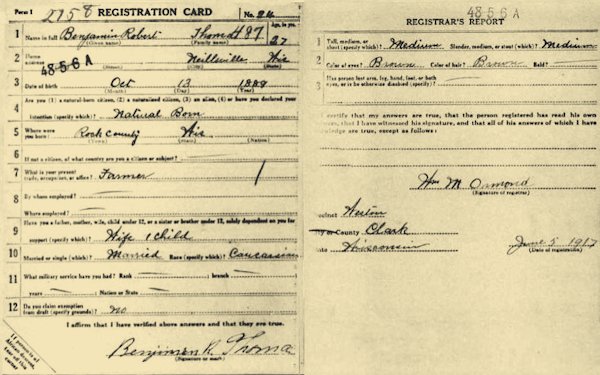 Form 1 2758 REGISTRATION CARD No. 24
1 Name in full Benjamin Robert Thoma 87 Age, in yrs. 27
(Given name) (Family name)
2 Home address Neillsville Wis
(No.) (Street) (City) (State)
4856A
3 Date of birth Oct 13 1889
(Month) (Day) (Year)
4 Are you (1) a natural-born citizen, (2) a naturalized citizen, (3) an alien, (4) or have you declared your
intention (specify which)? Natural Born
5 Where were you born? Rock County Wis
(Town) (State) (Nation)
6 If not a citizen, of what country are you a citizen or subject?
7 What is your present trade, occupation, or office? Farmer
8 By whom employed?
Where employed?
9 Have you a father, mother, wife, child under 12, or a sister or brother under 12, solely dependent on you for
support (specify which)? Wife 1 Child
10 Married or single (which)? Married Race (specify which)? Caucasian
11 What military service have you had? Rank branch
years Nation or State
12 Do you claim exemption from draft (specify grounds)? No
I affirm that I have verified above answers and that they are true.
Benjimen R. Thoma
(Signature or mark)
If person is of
African descent,
tear off this
corner
4856A
REGISTRAR'S REPORT
1 Tall, medium, or short (specify which)? Medium Slender, medium, or stout (which)? Medium
2 Color of eyes? Brown Color of hair? Brown Bald?
3 Has person lost arm, leg, hand, foot, or both
eyes, or is he otherwise disabled (specify)?
certify that my answers are true, that the person registered has read his own
, that I have witnessed his signature, and that all of his answers of which I have
ledge are true, except as follows:
Wm M. Ormond
(Signature of registrar)
cinct Weston
or County Clark
Wisconsin June 5, 1917
(Date of registration)